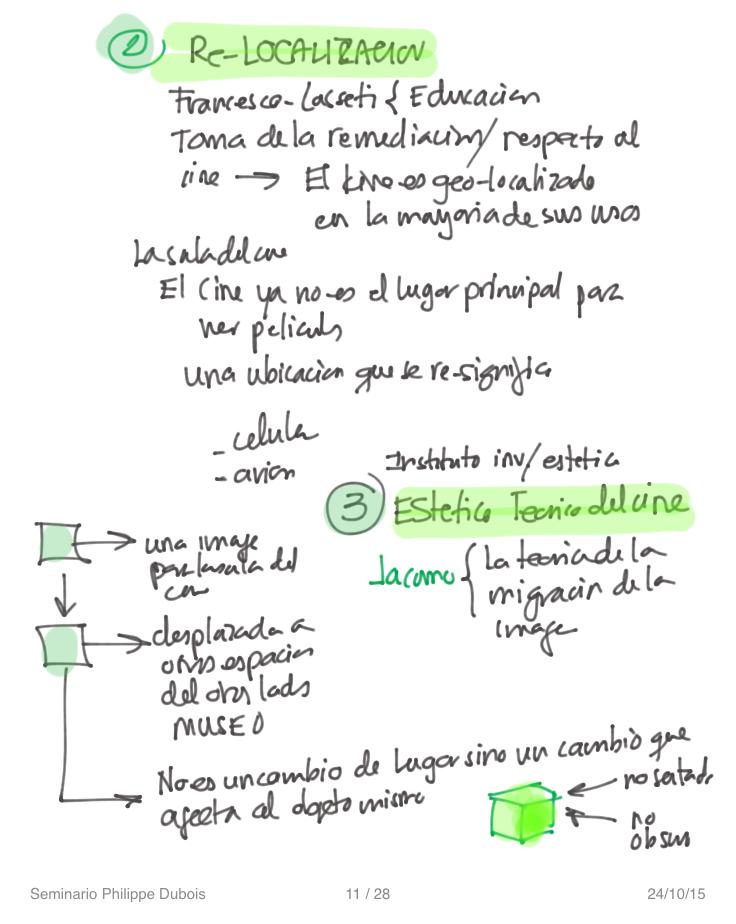 2 Re-LOCALIZACION
Francesco-Casseti { Educacion
Toma de la remediación/ respecto al
cine → El kino es geo-localizado
en la mayoria de sus usos
La sala del cine
El Cine ya no es el lugar principal para
ver peliculs
una ubicacion que se re-signifia
- celula
- avion
Instituto inv/estetica
3 EStetico Tecnico del cine
{ La teoria de la
migracin de la
image
una image
para la sala del
desplazada a
otros espacios
del otro lado
MUSEO
No es un cambio de lugar sino un cambio que
afecta al mismo
no
no
Seminario Philippe Dubois
11 / 28
24/10/15